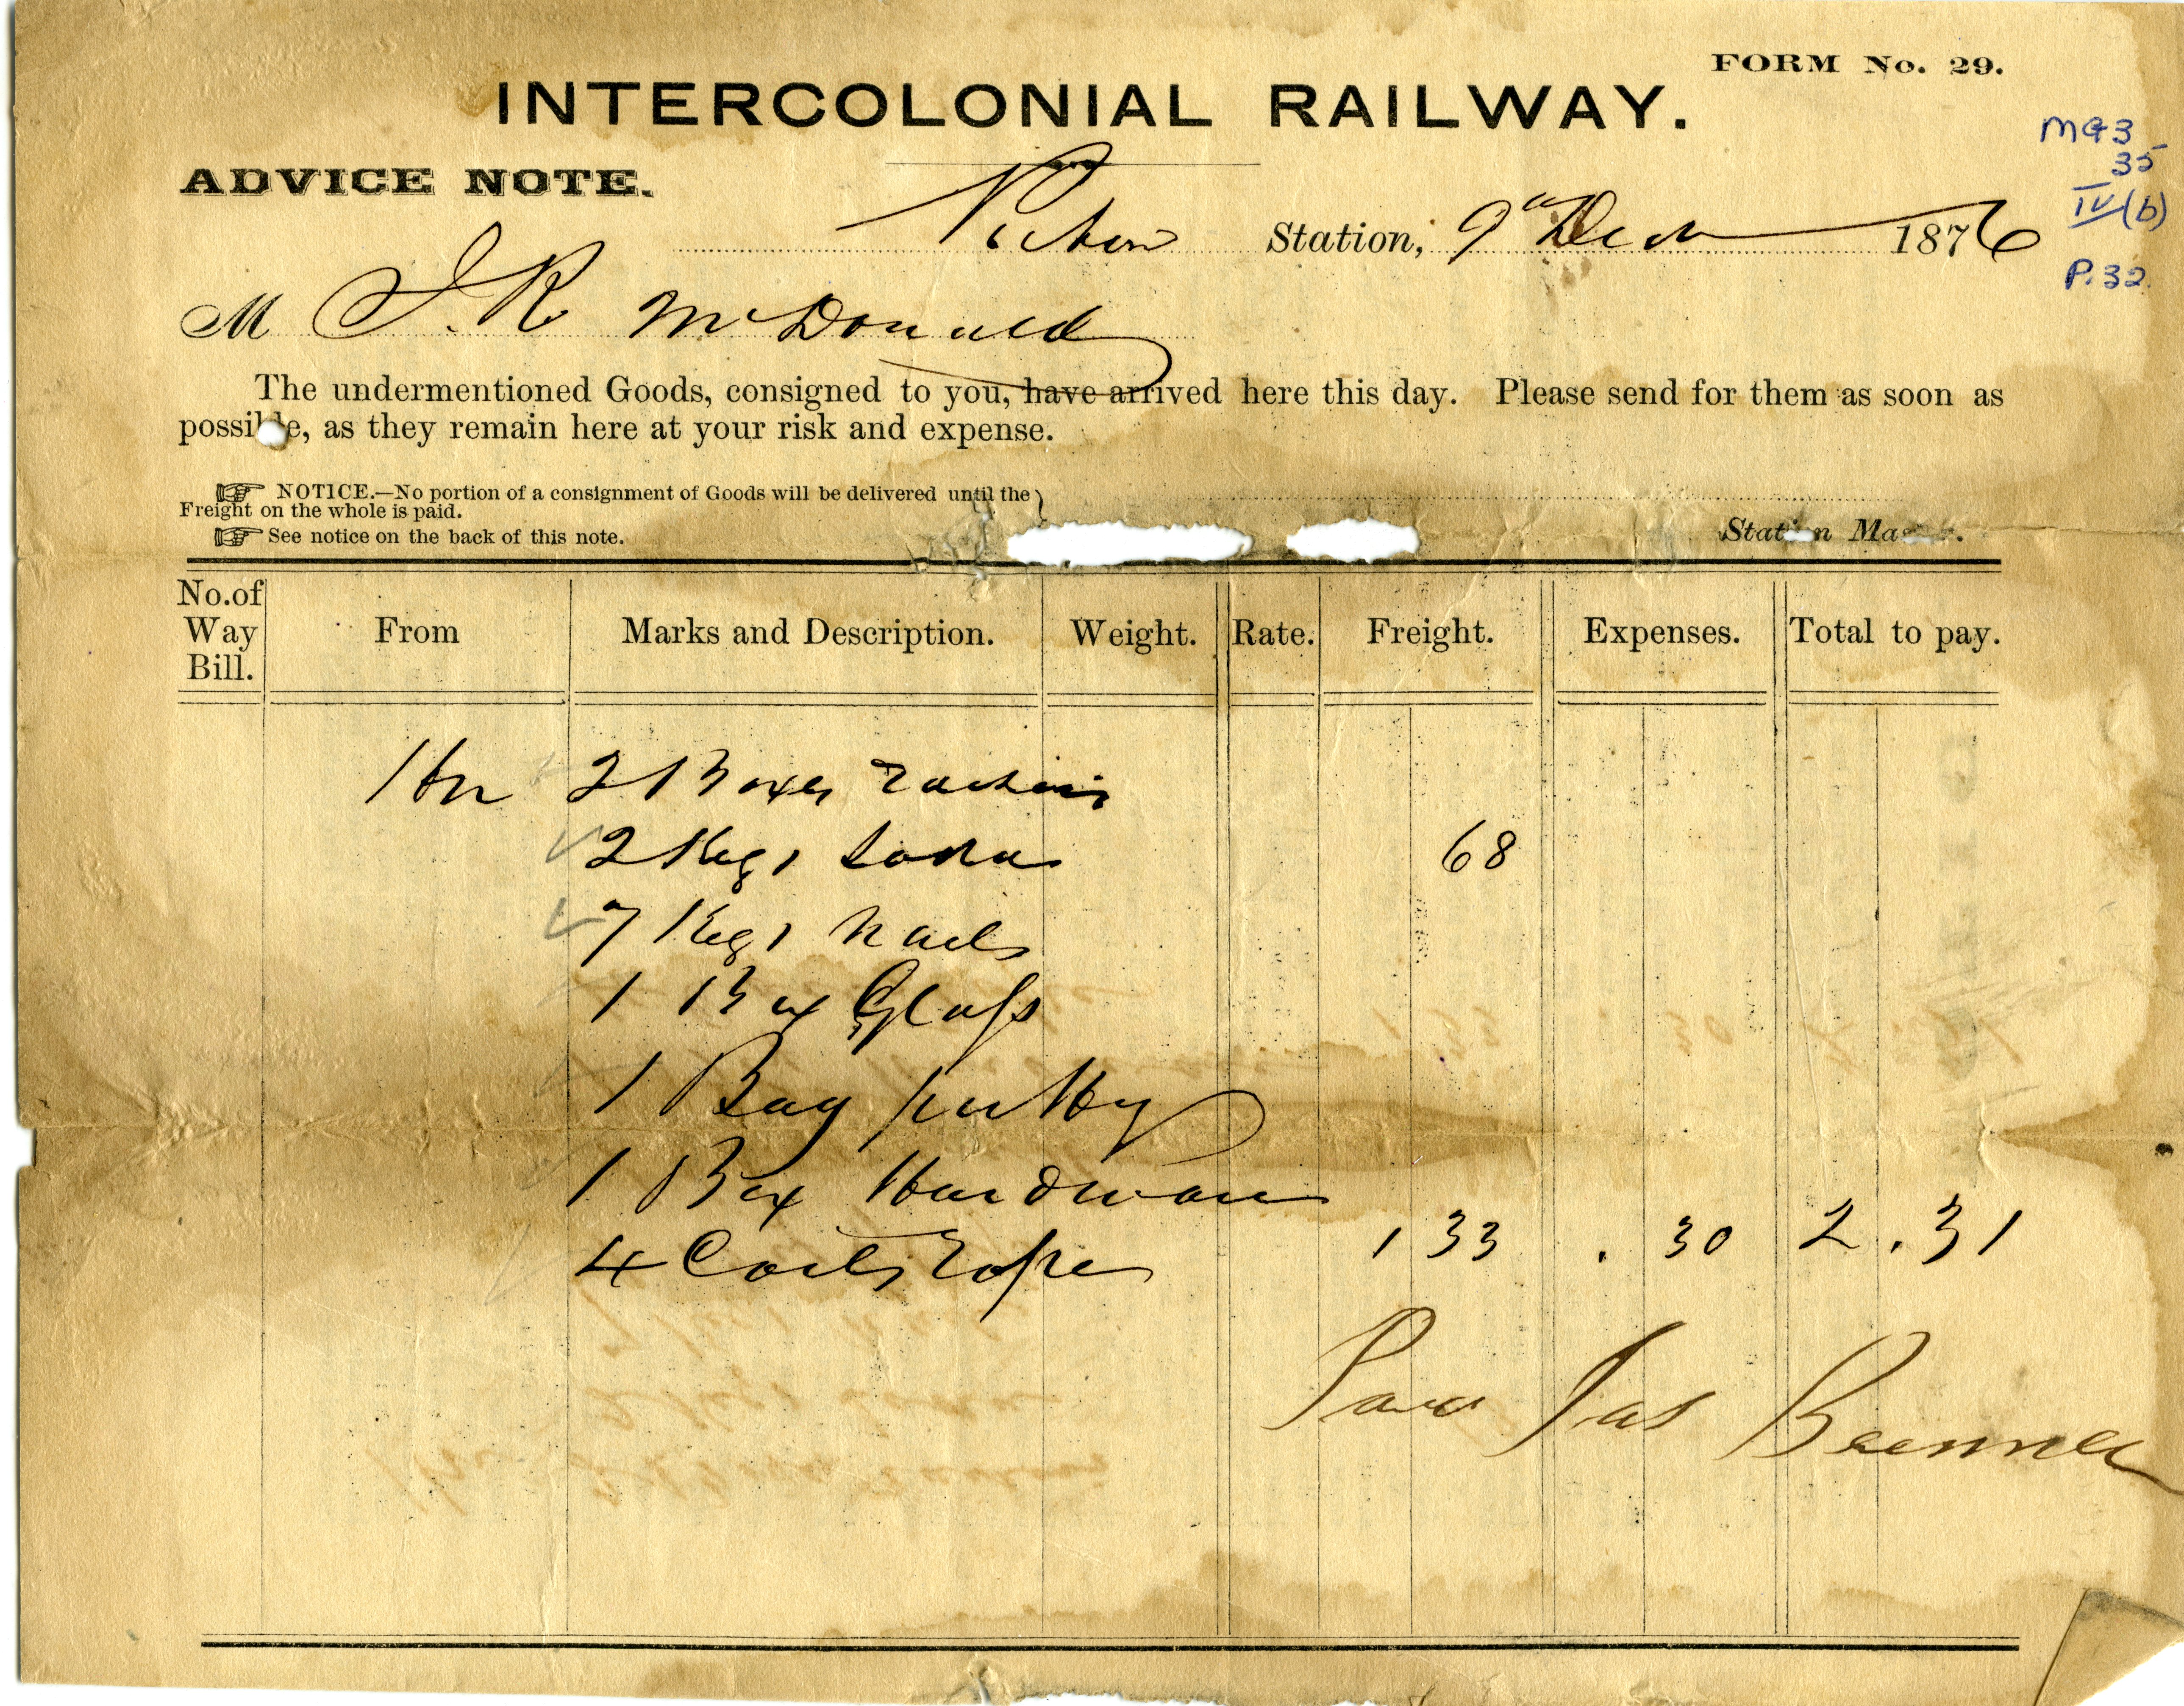 FORM No. 29.
INTERCOLONIAL RAILWAY.
MG3
35
IV(b)
P.32.
ADVICE NOTE.
Pictou Station, 9th Decr 1876
M J. R McDonald
The undermentioned Goods, consigned to you, have arrived here this day. Please send for them as soon as
possible, as they remain here at your risk and expense.
NOTICE.—No portion of a consignment of Goods will be delivered until the
Freight on the whole is paid.
See notice on the back of this note.
Station Mas
No. of Way Bill. From Marks and Description. Weight. Rate. Freight. Expenses. Total to pay.
Hx 2 Boxes Raisins
2 Kegs Soda 68
7 Kegs Nails
1 Box Glass
1 Bag putty
1 Box Hardware
4 Coils Rope 1 33 . 30 2 . 31
Paid Jas